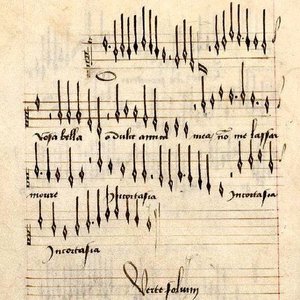 rosa bella o dulce anima mea no me lassar
moure Incortasia Incortasia
Incortasia
Verte folium